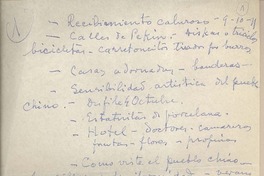 - Recibimiento caluroso - 9-10-
- Calles de Pekin:
bicicletas - carretoncitos tirados por burros
- Casas adornadas - banderas
- Sensibilidad artística del pueblo
chino. - Desfile 9 Octubre.
- Estatuitas de porcelana.
- Hotel - doctores - camareros
frutas - flores - propinas
- Como viste el pueblo chino -
verano